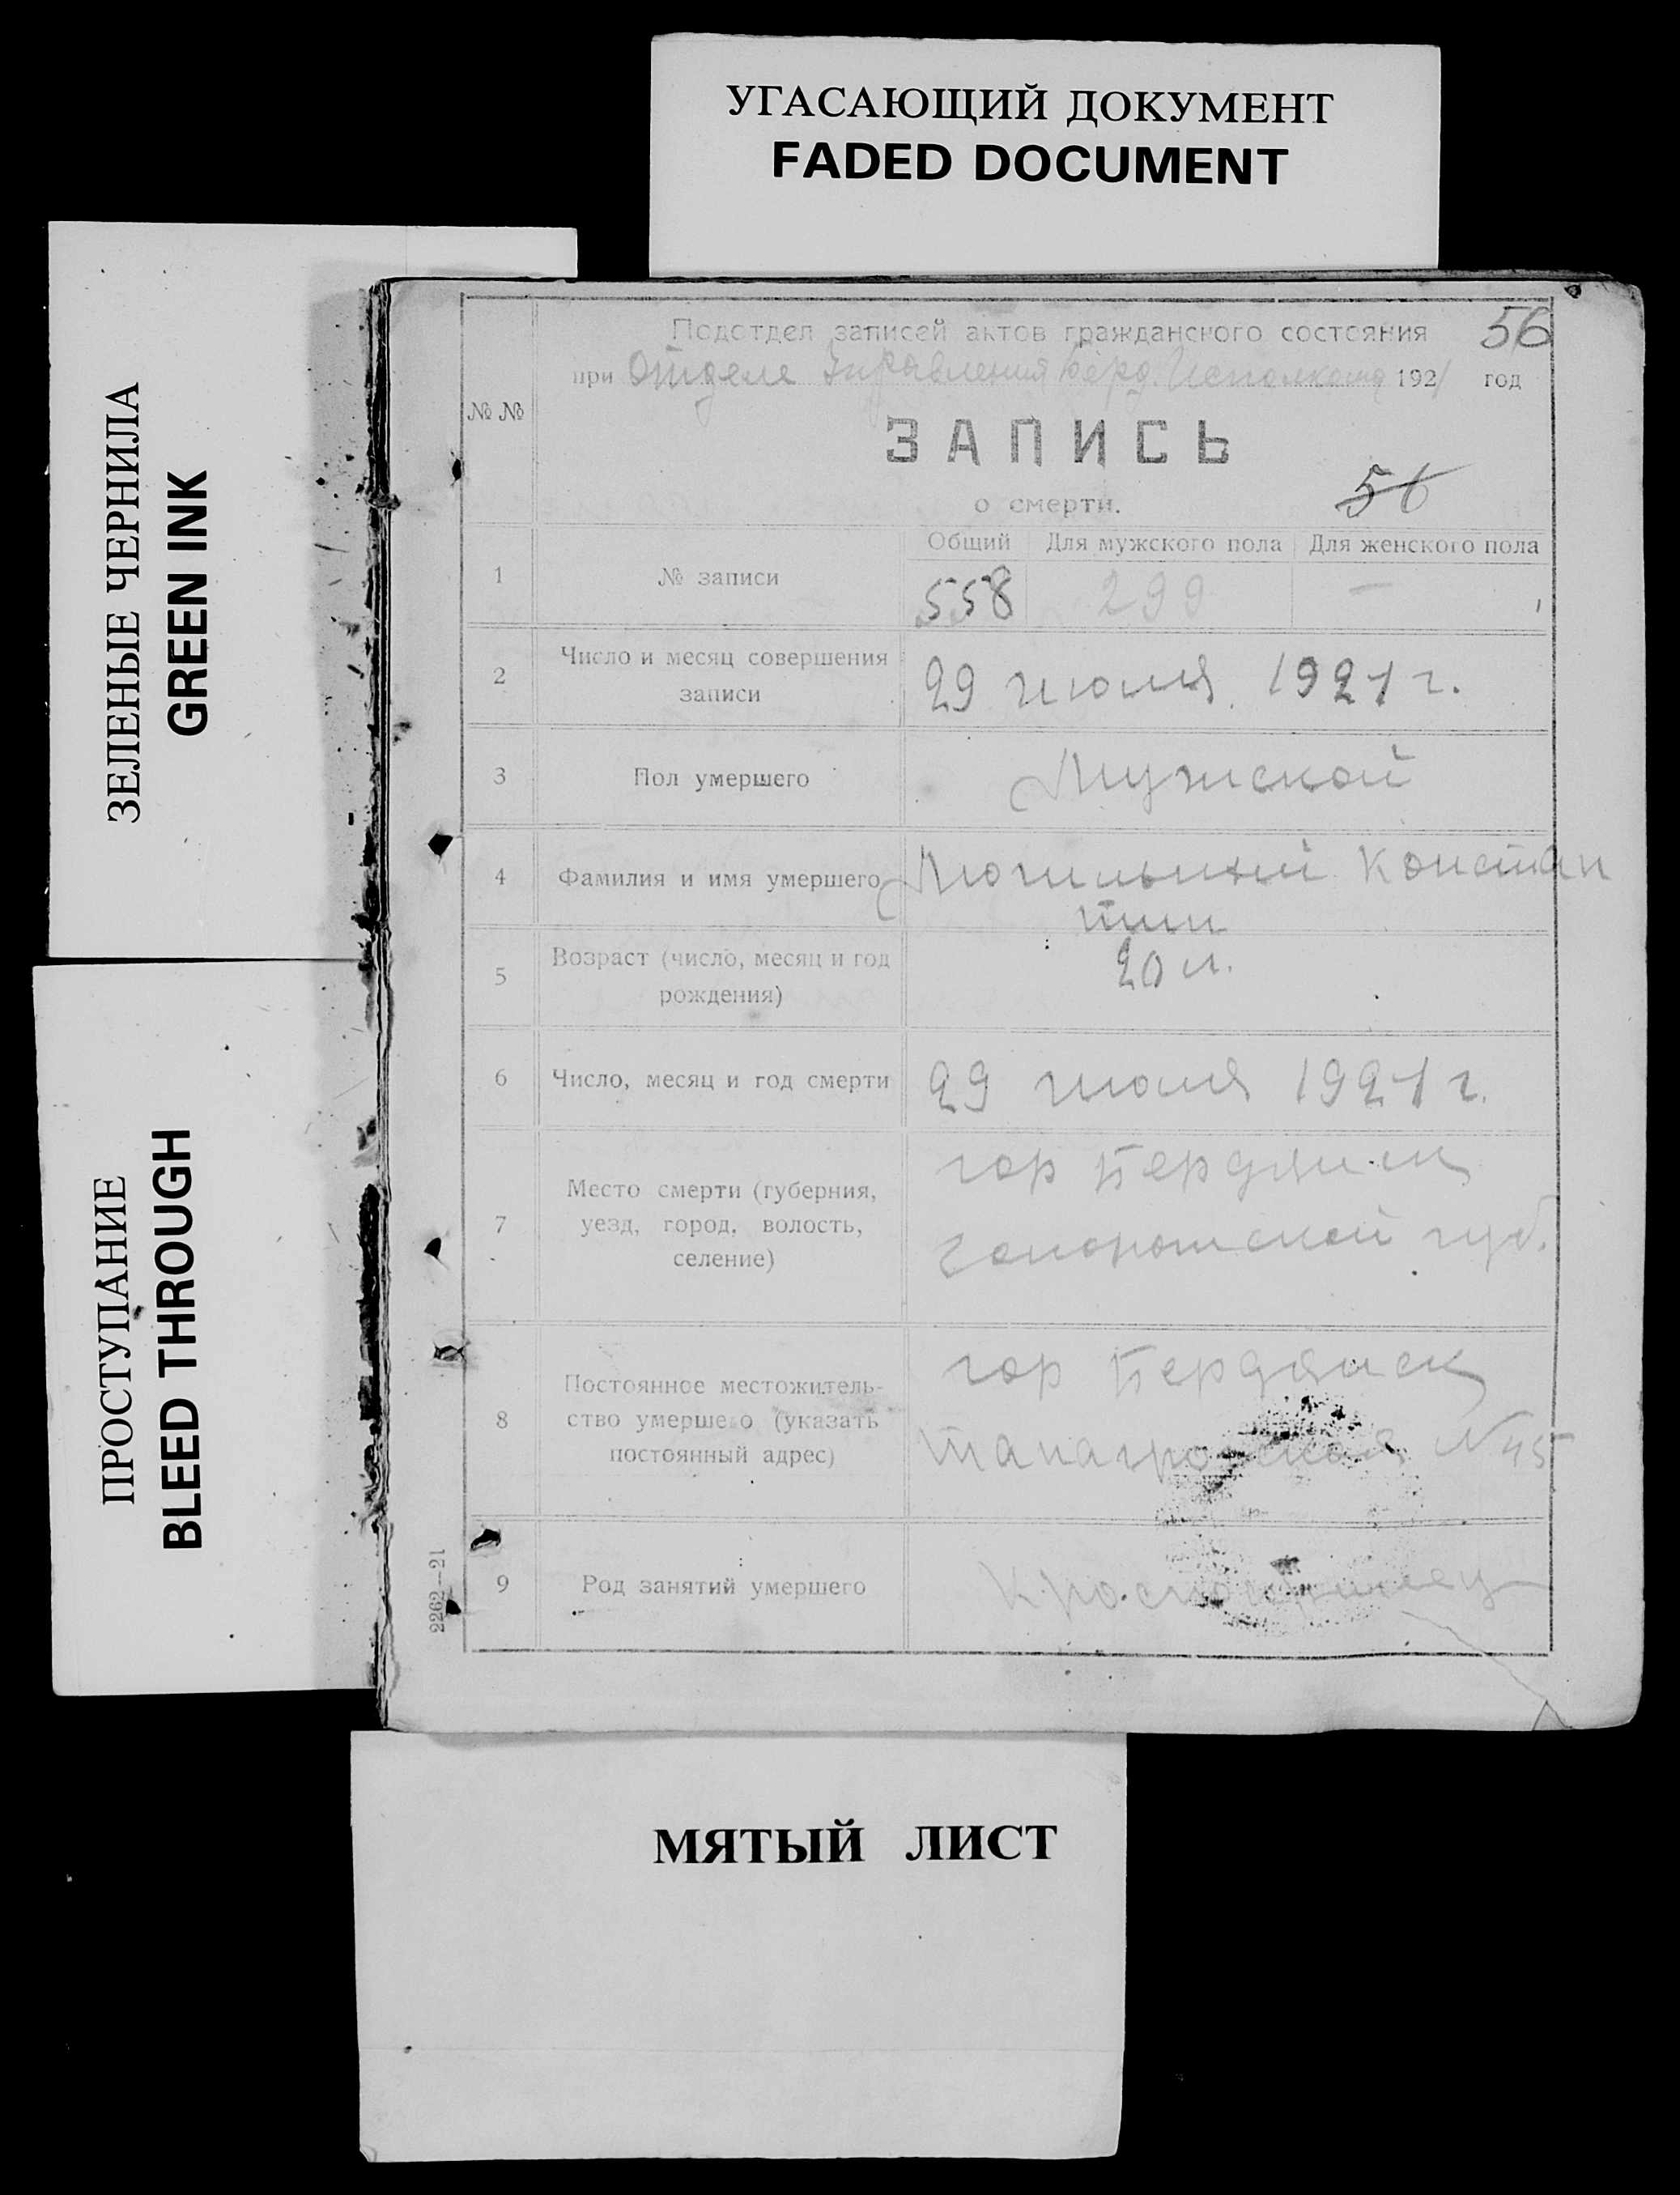 УГАСАЮЩИЙ ДОКУМЕНТ
FADED DOCUMENT
ЗЕЛЕНЫЕ ЧЕРНИЛА
GREEN INK
ПРОСТУПАНИЕ
BLEED THROUGH
56
Подотдел записей актов гражданского состояния
при Отделе Управления Берд. Исполкома 1921 год
№ №
ЗАПИСЬ
о смерти.
56
Общий Для мужского пола Для женского пола
1 № записи 558 299 —
2 Число и месяц совершения
записи
29 июля 1921 г.
3 Пол умершего Мужской
4 Фамилия и имя умершего Констан
тин
5 Возраст (число, месяц и год
рождения)
20 л.
6 Число, месяц и год смерти 29 июля 1921 г.
7 Место смерти (губерния,
уезд, город, волость,
селение)
гор Бердянск
губ.
8 Постоянное местожитель-
ство умершего (указать
постоянный адрес)
гор Бердянск
№ 45
9 Род занятий умершего Красноармеец
2262—21
МЯТЫЙ ЛИСТ